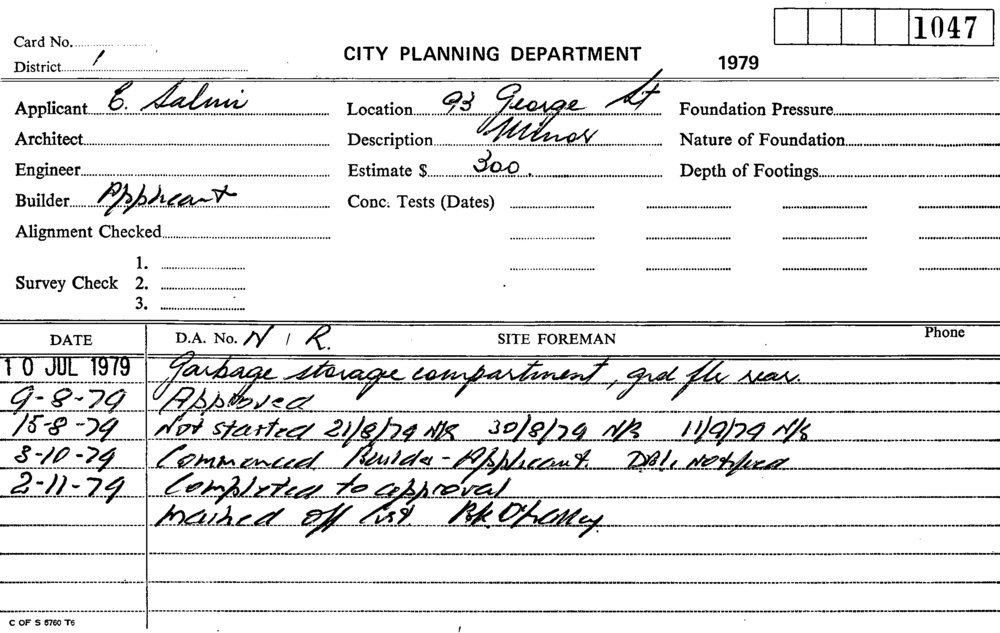 1047
Card No.
CITY PLANNING DEPARTMENT 1979
District 1
Applicant E. Salmi Location 93 George St Foundation Pressure
Architect Description Minor Nature of Foundation
Engineer Estimate $ 300. Depth of Footings
Builder Applicant Conc. Tests (Dates)
Alignment Checked
1.
Survey Check 2.
3.
DATE D.A. No. N / R. SITE FOREMAN Phone
10 JUL 1979 Garbage storage compartment, grd flr rear.
9-8-79 Approved
15-8-79 Not started 21/8/79 N/S 30/8/79 N/S 11/9/79 N/S
3-10-79 Commenced Builder - Applicant. Notified
2-11-79 Completed to approval
marked off list.
C OF S 5760 T6